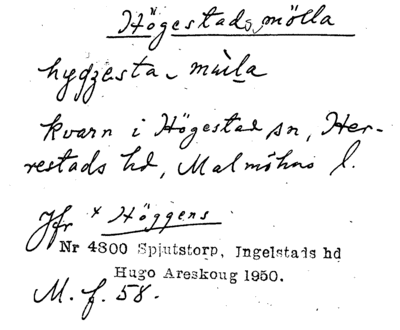 Högestads mölla
hygzesta mula
kvarn i Högestad sn, Her-
restads hd, Malmöhus l.
Jfr × Höggens
Nr 4800 Spjutstorp, Ingelstads hd
Hugo Areskoug 1950.
M. f. 58.